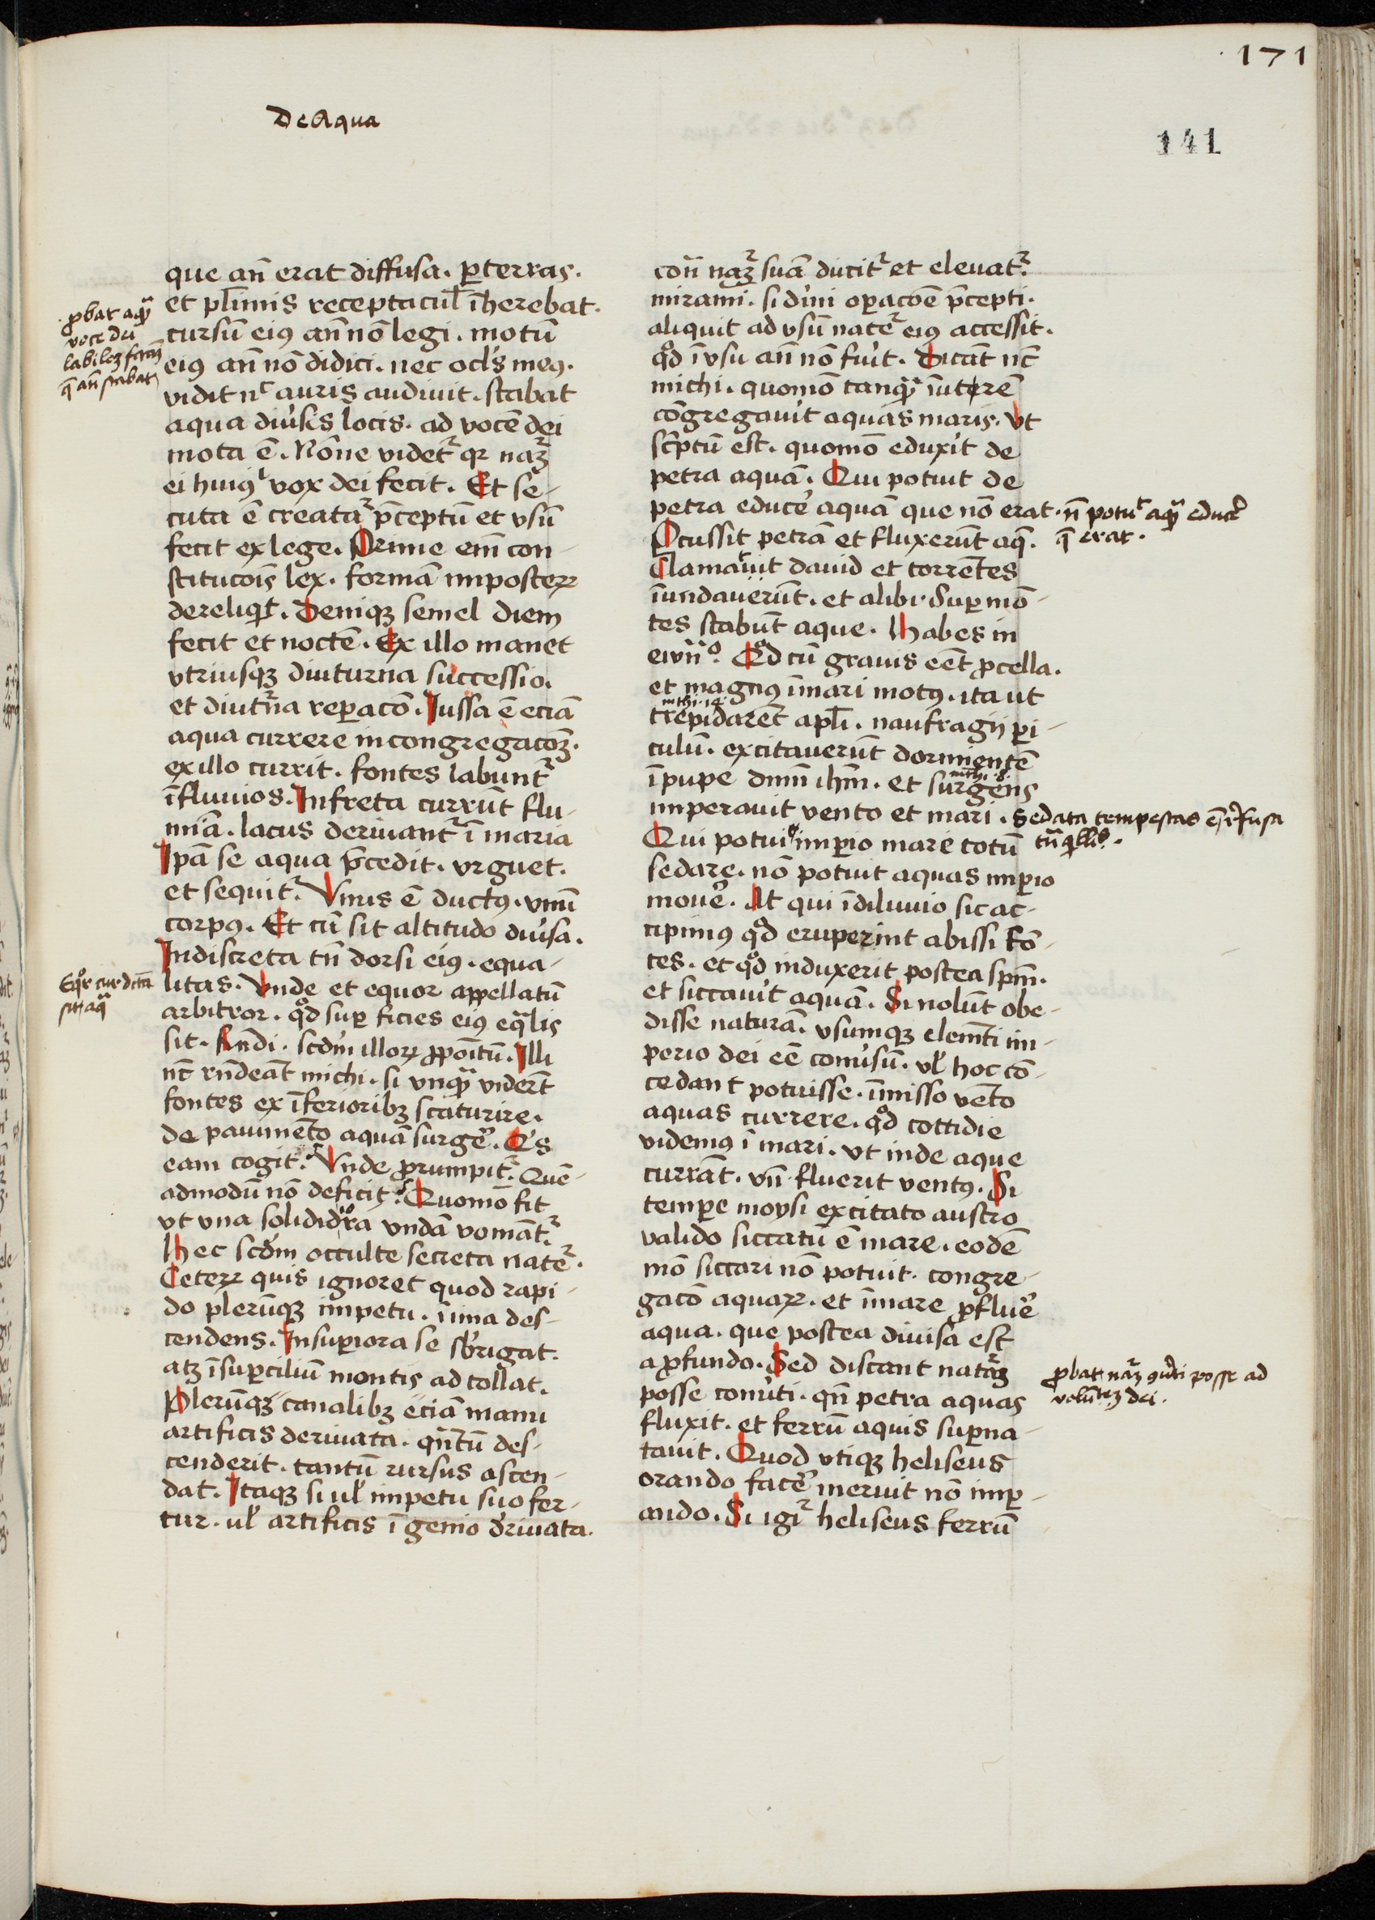 171
De Aqua
141
que an̄ erat diffusa. ꝑ terras.
et pl̄imis receptacul̄ īherebat.
cursū eiꝰ an̄ nō legi. motū
eiꝰ an̄ nō didici. nec ocl's meꝰ.
vidit nͨ auris audiuit. stabat
aqua diu'sis locis. ad vocē dei
mota ē. Nōne videtʳ qꝛ naʒ
ei huiꝰ vox dei fecit. Et se-
cuta ē creataʳ p̄ceptū et vsū
fecit ex lege. Prime em̄ con-
stitucōis lex. formā imposteꝝ
dereliqͥt. Deniqʒ semel diem
fecit et noctē. Ex illo manet
vtriusqʒ diuturna successio.
et diut'na reꝑacō. Iussa ē eciā
aqua currere in congregacōʒ.
ex illo currit. fontes labuntʳ
ī fluuios. In freta currūt flu-
mīa. lacus deriuantʳ ī maria
Ipā se aqua p̄cedit. vrguet.
et sequitʳ. Vnus ē ductꝰ. vnū
corpꝰ. Et cū sit altitudo diu'sa.
Indiscreta tn̄ dorsi eiꝰ. equa-
litas. Vnde et equor appellatū
arbitror. qͦd suꝑ ficies eiꝰ eqͣlis
sit. Andi. scd'm illoꝝ ꝓpoītū. Illi
nͨ rn̄deāt michi. si vnqͣ viderīt
fontes ex īferioribʒ scaturire.
de pauimēto aquā surge'. Qͥs
eam cogit. Vnde ꝓrumpitʳ. Quē-
admodū nō deficit. Quomō fit
vt vna soliditͦra vndā vomātʳ
Hec scd'm occulte secreta nateʳ.
Ceteꝝ quis ignoret quod rapi-
do plerūqʒ impetu. īima des-
cendens. In suꝑiora se sb'rigat.
atʒ ī suꝑciliū montis ad tollat.
Plerūqʒ canalibʒ eciā manu
artificis deriuata. qn̄tū des-
cenderit. tantū rursus ascen-
dat. Itaqʒ si ul' impetu suo fer-
tur. ul' artificis ī genio d'riuata.
ꝓbat aqͣ
voce dei
labilez fcāʒ
q̄ an̄ stabat
Eqͦr cur dc̄ā
sit aqͣ
con̄ naʒ suā ducitʳ et eleuatʳ.
miramī. si diu'ni oꝑacōē p̄cepti.
aliquit ad vsū nateʳ eiꝰ accessit.
qͦd ī vsu an̄ nō fuit. Dicāt nͨ
michi. quomō tanqͣ ī utrē
congregauit aquas maris. Vt
sc'ptū est. quomō eduxit de
petra aquā. Qui potuit de
petra educe' aquam que nō erat.
Ꝑcussit petrā et fluxerūt aq̄.
Clamauit dauid et torrentes
īundauerūt. et alibi. Suꝑ mō-
tes stabūt aque. Habes in
ewn̄ᵒ. Qͦd cū grauis eēt ꝓcella.
et magnꝰ ī mari motꝰ. ita ut
mthi. 14
trepidarēt apl̄i. naufragij ꝑi-
culū. excitauerūt dormientē
ī pupe dnm̄ ihm̄. et surgens
mthi. 8.
imperauit vento et mari.
Qui potuit imꝑio mare totū
sedare. nō potuit aquas imꝑio
moue'. At qui ī diluuio sic ac-
cipimꝰ qͦd eruperint abissi fō-
tes. et qͦd induxerit postea spm̄.
et siccauit aquā. Si nolūt obe-
disse naturā. vsumqʒ elem̄ti im-
perio dei eē conu'sū. ul' hoc cō-
cedant potuisse. īmisso vento
aquas currere. qͦd cottidie
videmꝰ ī mari. vt inde aque
currāt. vn̄ fluerit ventꝰ. Si
tempe moysi excitato austro
valido siccatū ē mare. eodē
mō siccari nō potuit. congre-
gacō aquaꝝ. et ī mare ꝓflue'
aqua. que postea diuisa est
a ꝓfundo. Sed discant natāʒ
posse conu'ti. qn̄ petra aquas
fluxit. et ferrū aquis suꝑna-
tauit. Quod vtiqʒ heliseus
orando face' meruit nō imꝑ-
ando. Si igiʳ heliseus ferrū
n̄ potuͭ aqͣ educe'
q̄ erat.
Sedata tempestas ē ī fusa
tn̄ qͥllͦ.
ꝓbat naʒ ꝯu'ti posse ad
volūtʒ dei.